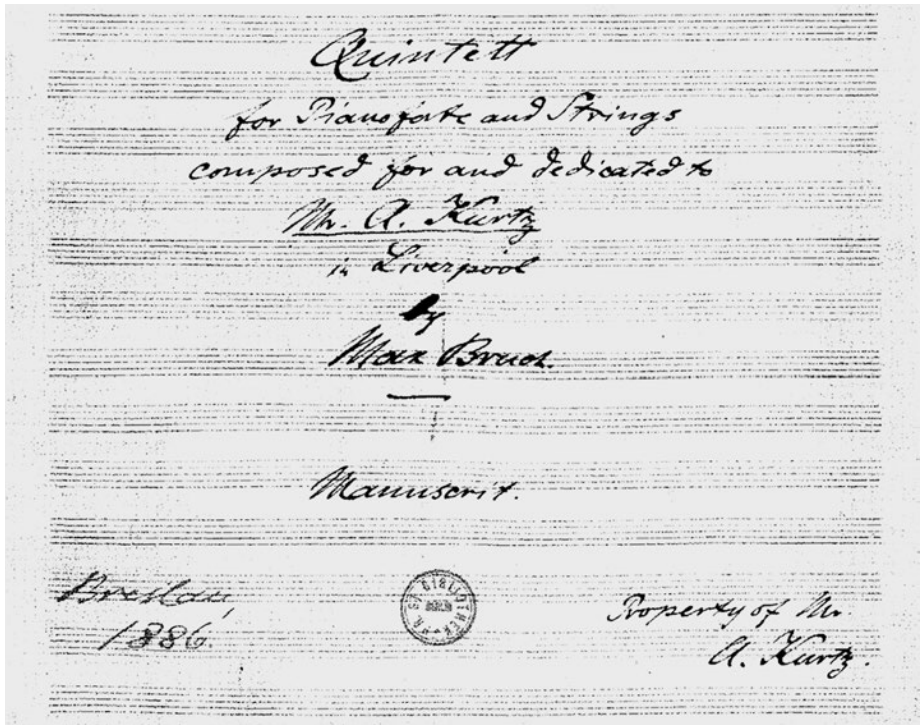 Quintett
for Pianoforte and Strings
composed for and dedicated to
Mr. A. Kurtz
in Liverpool
by
Max Bruch.
Manuscrit.
Breslau,
1886.
PR. ST. BIBLIOTHEK BERLIN
Property of Mr.
A. Kurtz.